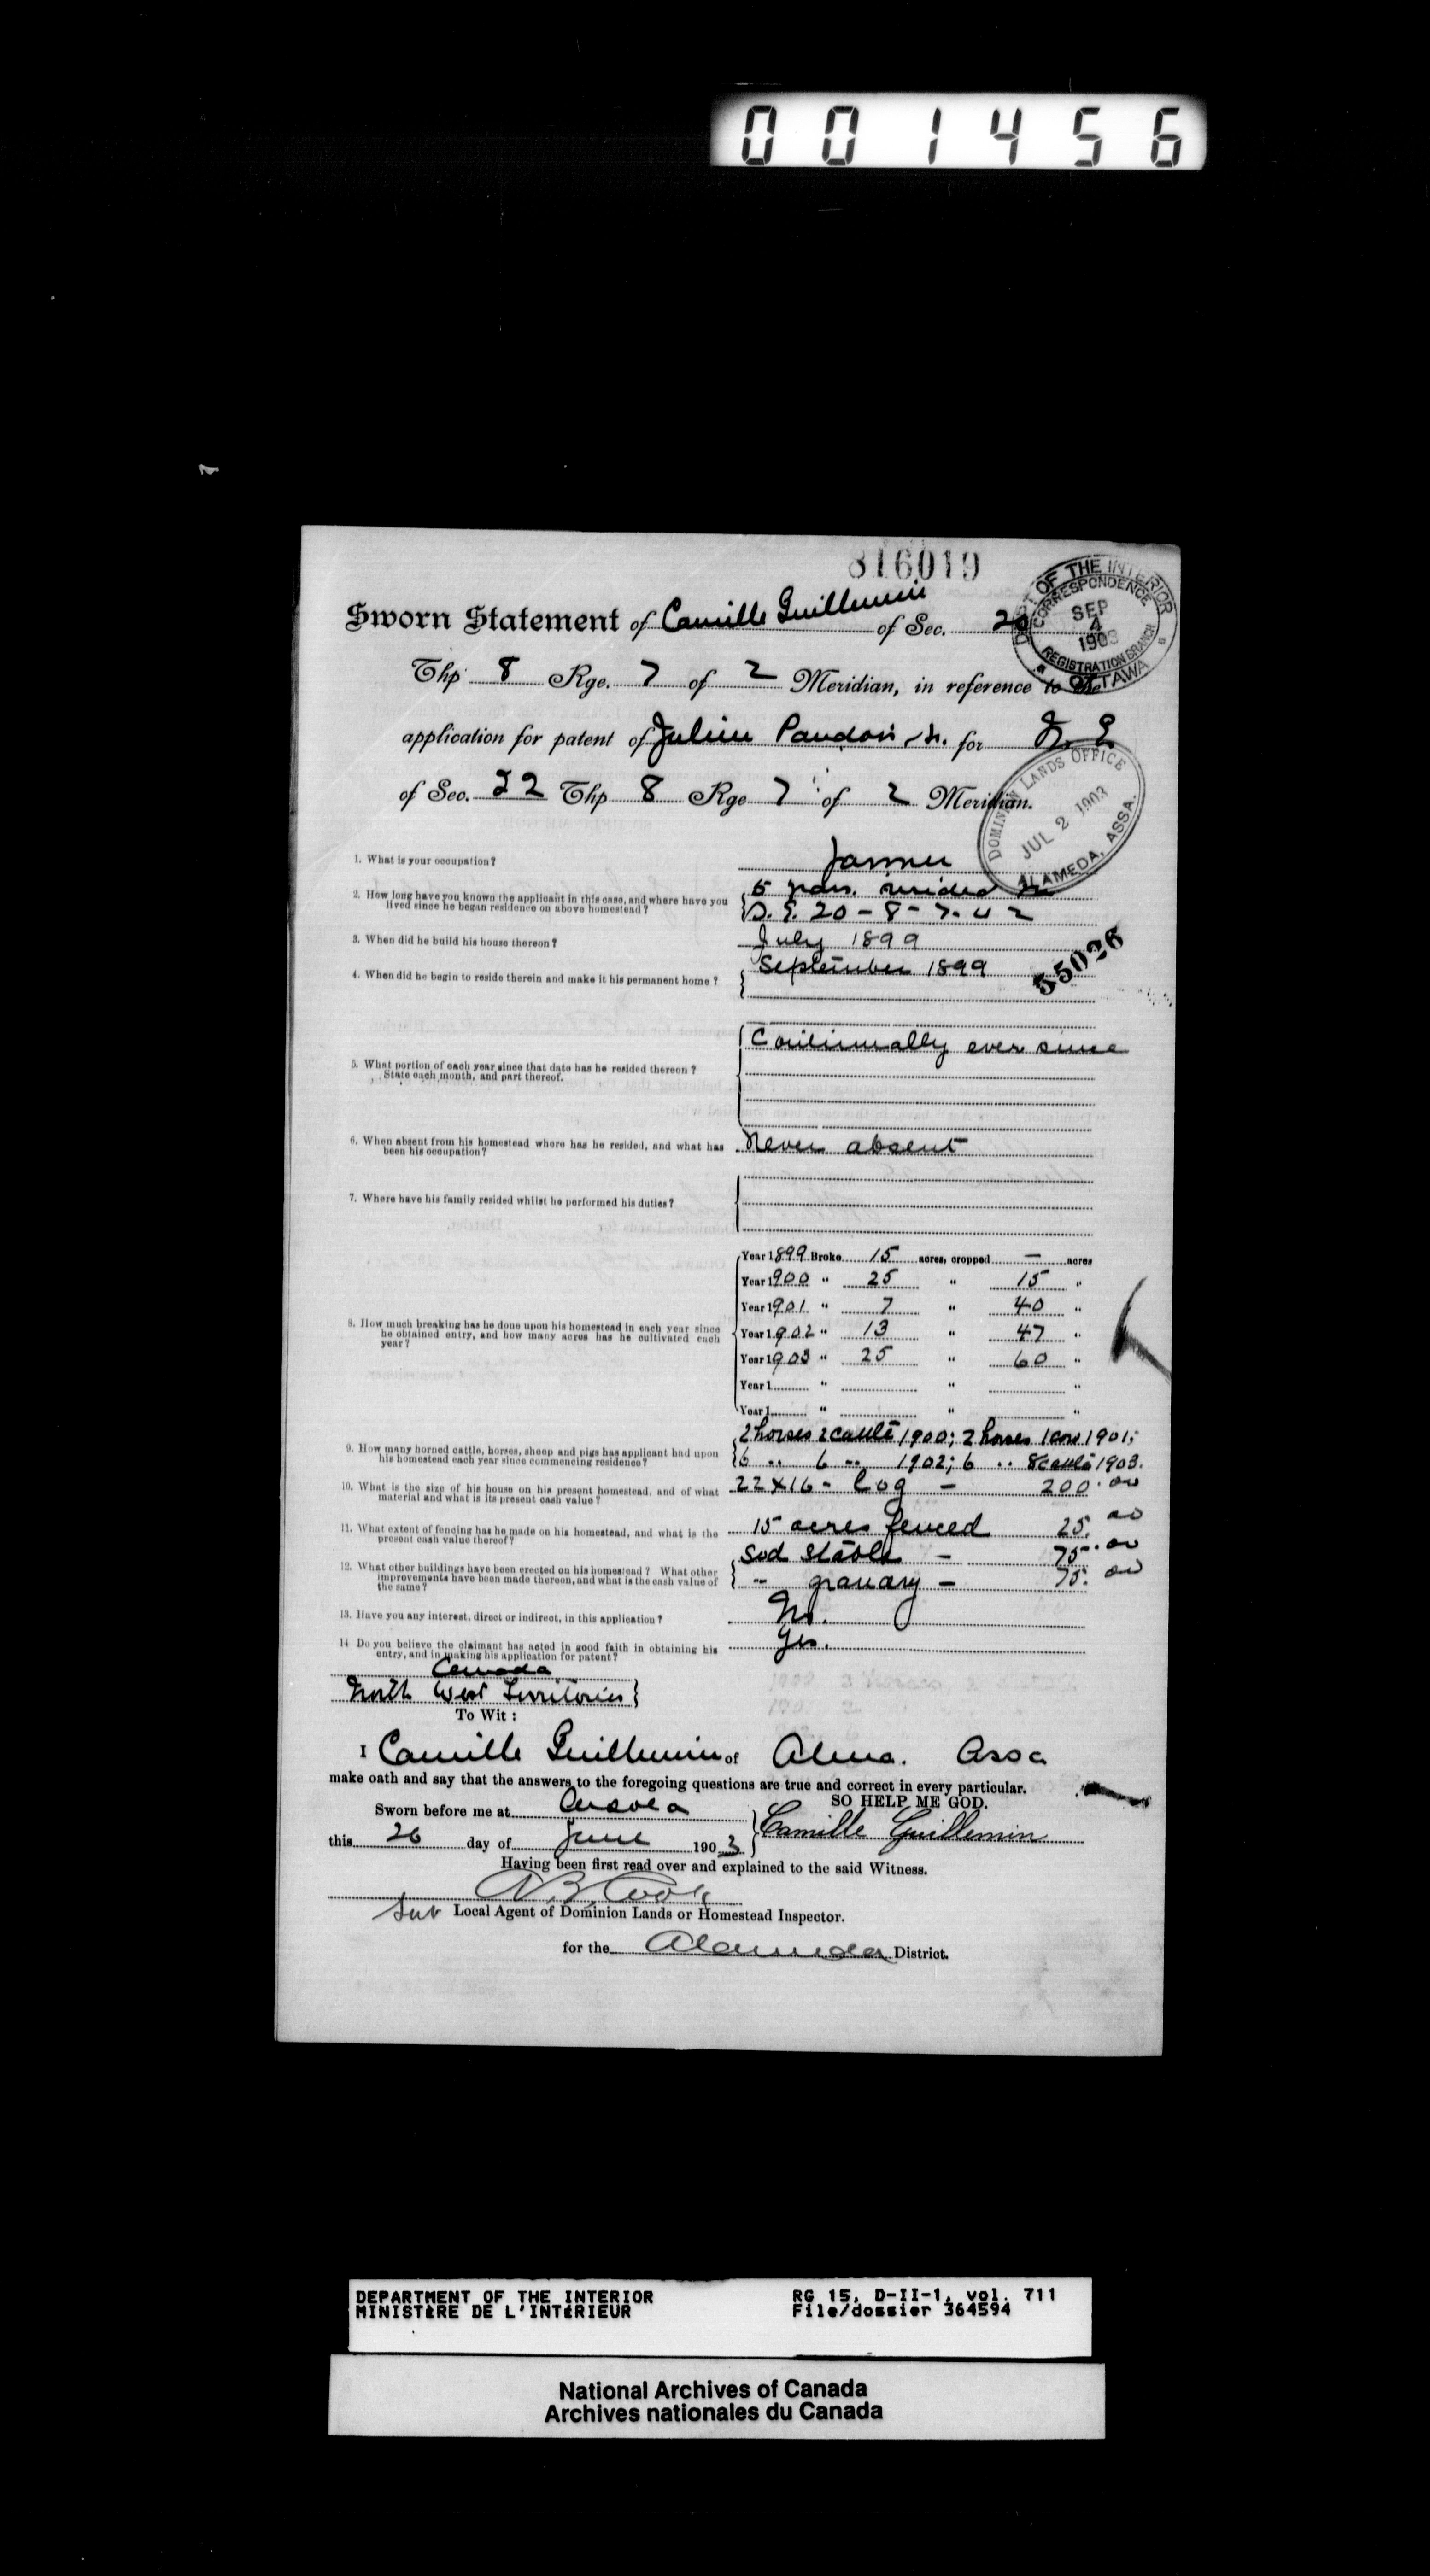 001456
816019
DEPT OF THE INTERIOR
CORRESPONDENCE
SEP
4
1903
REGISTRATION BRANCH
OTTAWA
Sworn Statement of Camille Guillemin of Sec. 20
Thp 8 Rge. 7 of 2 Meridian, in reference to the
application for patent of Julien for
of Sec. 22 Thp 8 Rge 7 of 2 Meridian.
DOMINION LANDS OFFICE
JUL 2 1903
ALAMEDA, ASSA.
1. What is your occupation? farmer
2. How long have you known the applicant in this case, and where have you 5 years. resided
lived since he began residence on above homestead? S. E. 20 - 8 - 7 - W 2
3. When did he build his house thereon? July 1899
4. When did he begin to reside therein and make it his permanent home? September 1899
55026
Continually ever since
5. What portion of each year since that date has he resided thereon?
State each month, and part thereof.
6. When absent from his homestead where has he resided, and what has Never absent
been his occupation?
7. Where have his family resided whilst he performed his duties?
Year 1899 Broke 15 acres, cropped — acres
Year 1900 " 25 " 15 "
Year 1901 " 7 " 40 "
8. How much breaking has he done upon his homestead in each year since
he obtained entry, and how many acres has he cultivated each
year?
Year 1902 " 13 " 47 "
Year 1903 " 25 " 60 "
Year 1 " " "
Year 1 " " "
2 horses 2 cattle 1900; 2 horses 1 cow 1901;
9. How many horned cattle, horses, sheep and pigs has applicant had upon
his homestead each year since commencing residence? 6 .. 6 .. 1902; 6 .. 8 cattle 1903.
10. What is the size of his house on his present homestead, and of what 22 x 16 - Log - 200.00
material and what is its present cash value?
11. What extent of fencing has he made on his homestead, and what is the 15 acres fenced 25.00
present cash value thereof?
Sod stable - 75.00
12. What other buildings have been erected on his homestead? What other
improvements have been made thereon, and what is the cash value of " granary - 75.00
the same?
13. Have you any interest, direct or indirect, in this application? No.
14 Do you believe the claimant has acted in good faith in obtaining his Yes.
entry, and in making his application for patent?
Canada
North West Territories }
To Wit :
I Camille Guillemin of Alma. Assa
make oath and say that the answers to the foregoing questions are true and correct in every particular.
SO HELP ME GOD.
Sworn before me at
this 26 day of June 1903 } Camille Guillemin
Having been first read over and explained to the said Witness.
A B Cook
Sub Local Agent of Dominion Lands or Homestead Inspector.
for the Alameda District.
DEPARTMENT OF THE INTERIOR RG 15, D-II-1, vol. 711
MINISTÈRE DE L'INTÉRIEUR File/dossier 364594
National Archives of Canada
Archives nationales du Canada